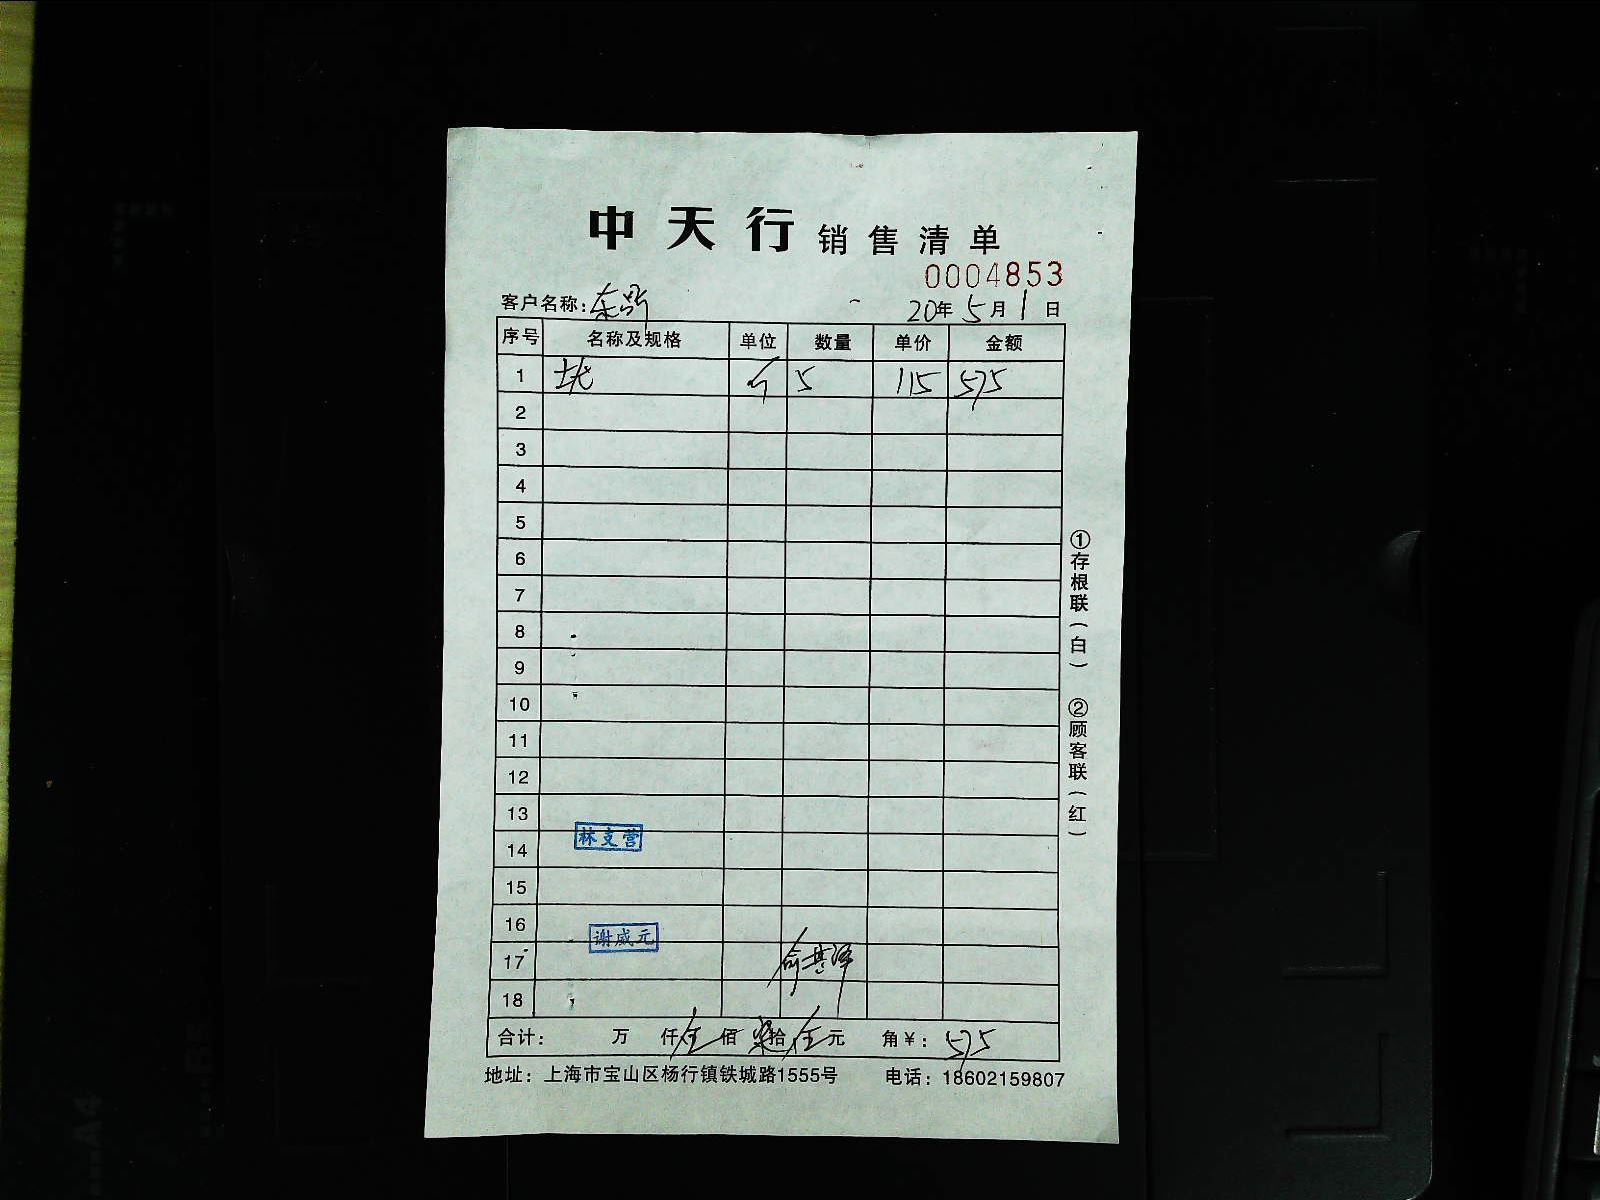 中天行 销售清单
0004853
客户名称:
20年5月1日
序号 名称及规格 单位 数量 单价 金额
1 5 115 575
2
3
4
5
6
7
8
9
10
11
12
13
林支营
14
15
16
谢威元
17
18
合计: 万 仟 伍 佰 柒 拾 伍 元 角¥: 575
地址: 上海市宝山区杨行镇铁城路1555号 电话: 18602159807
①存根联(白) ②顾客联(红)